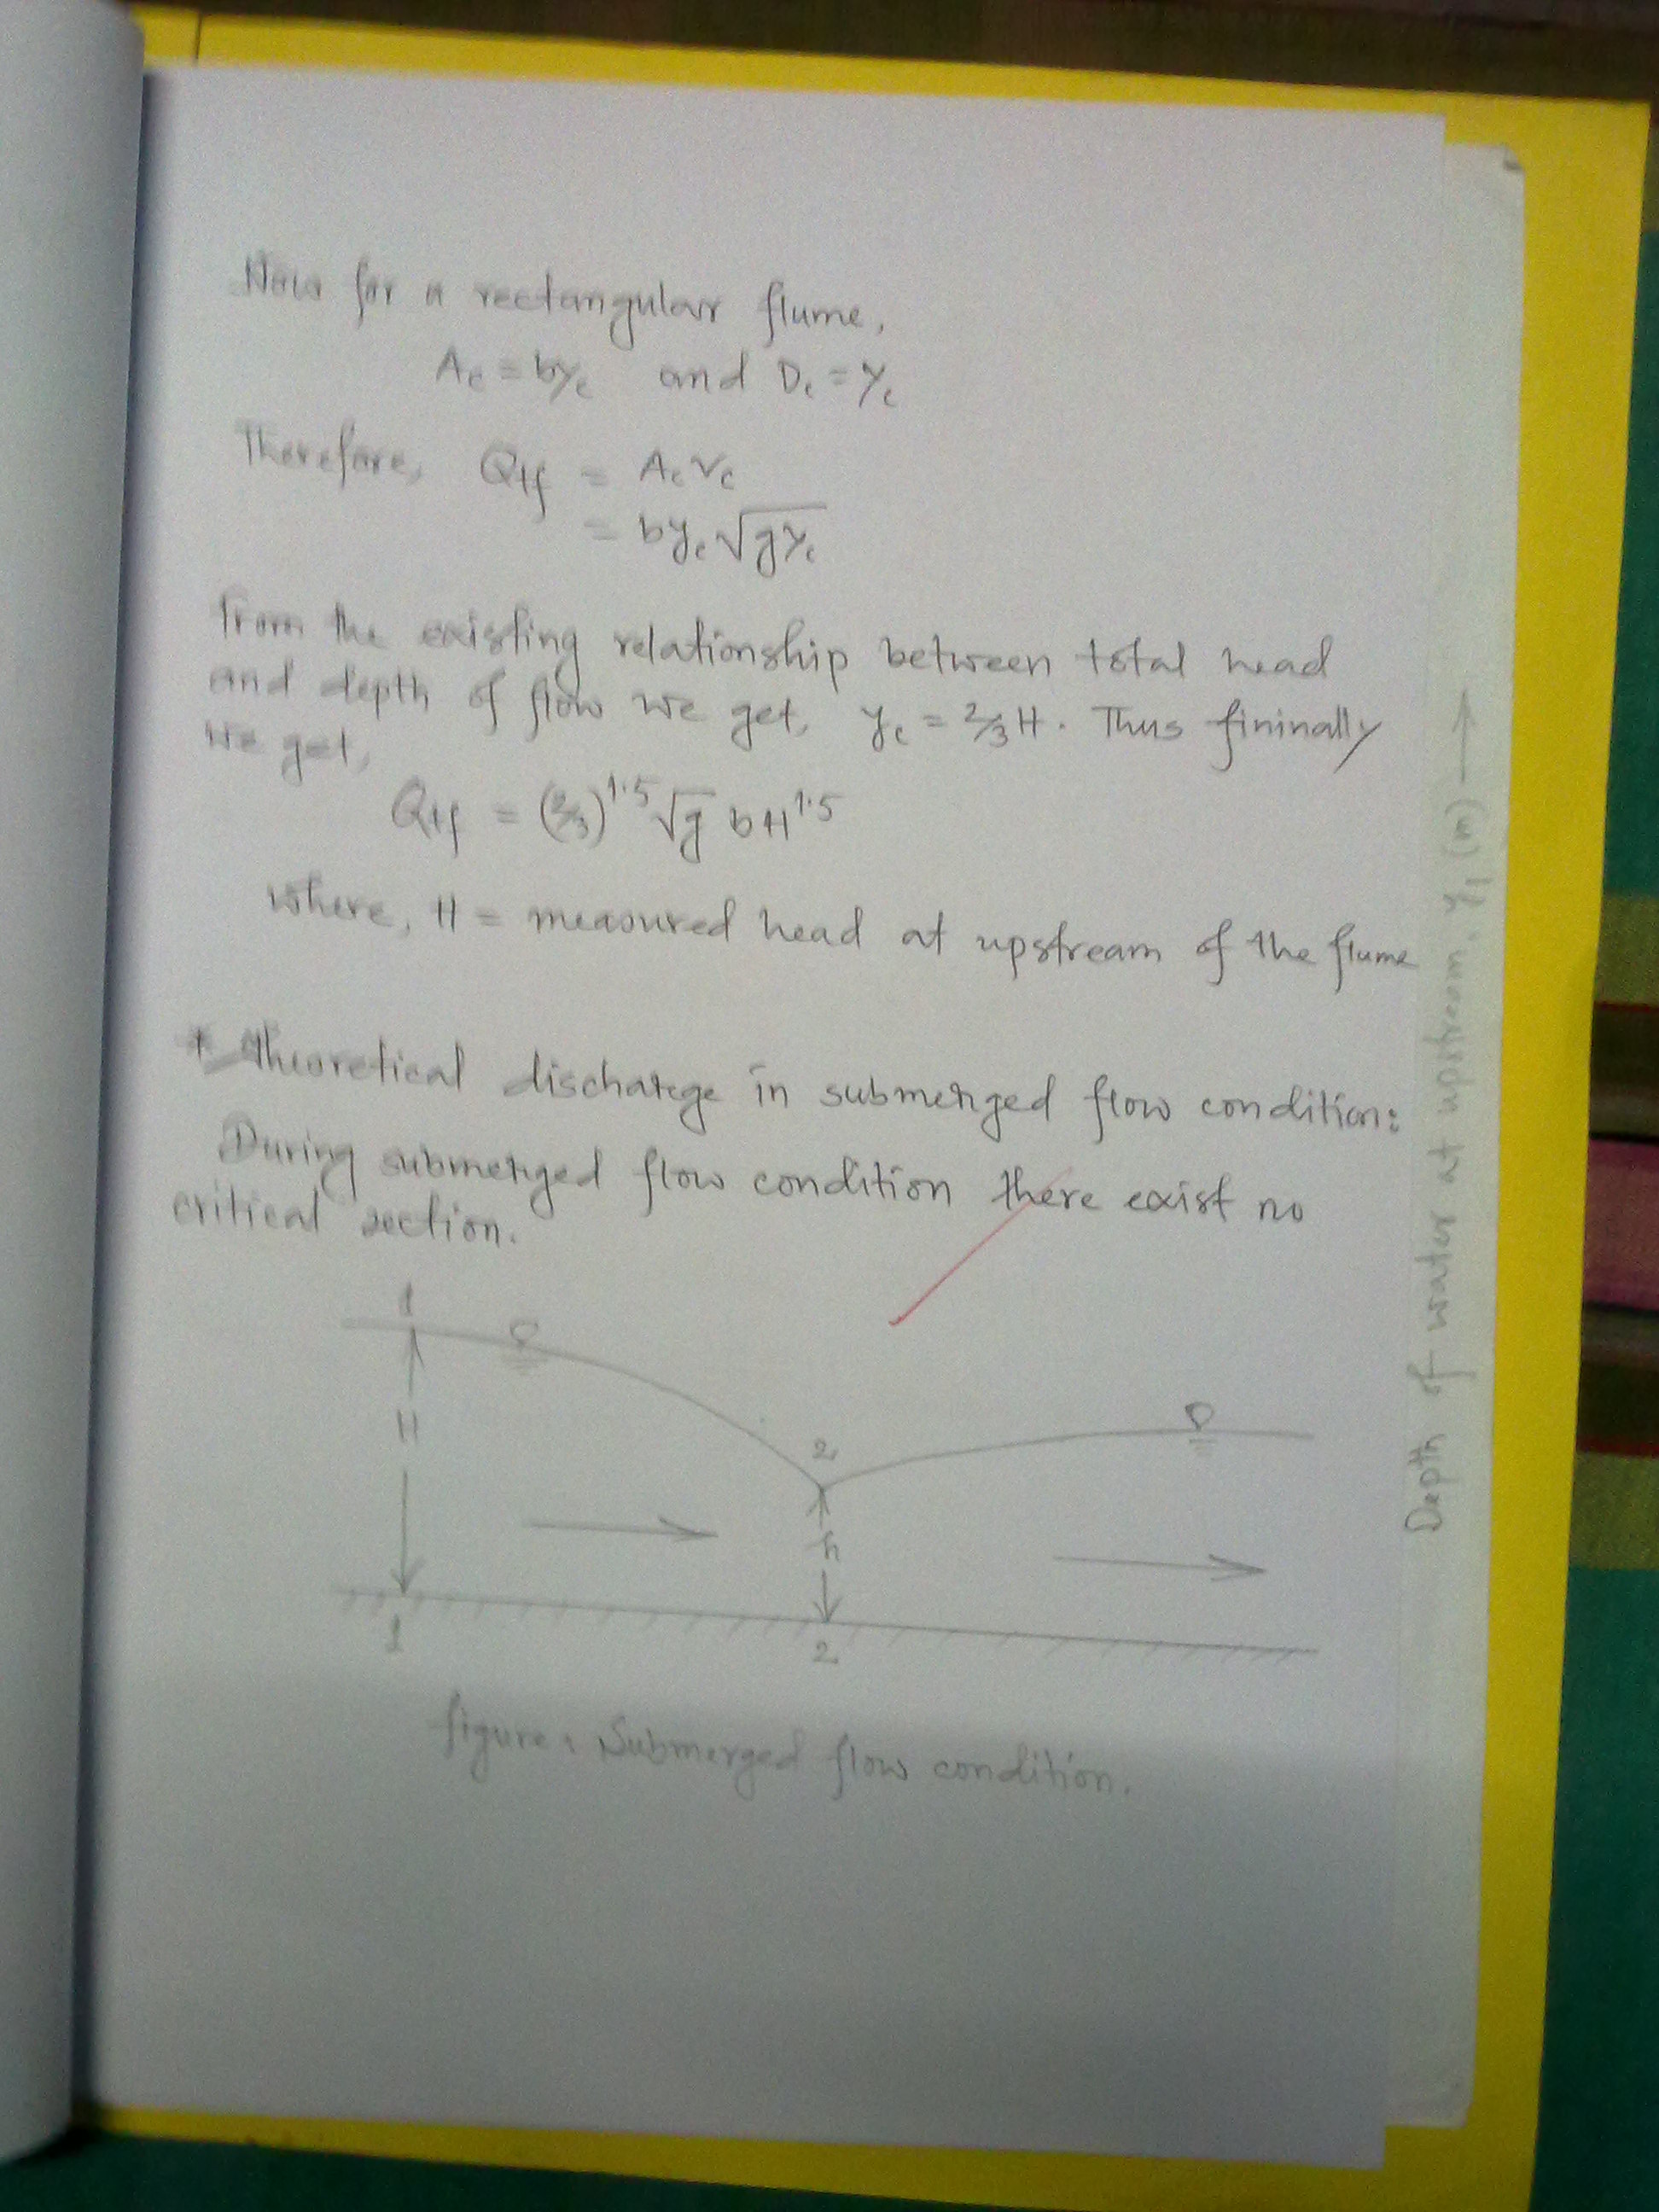 Now for a rectangular flume,
Ac = byc and Dc = yc
Therefore, Qtf = Acvc
= byc√gyc
From the existing relationship between total head
and depth of flow we get, yc = 2/3 H. Thus fininally
we get,
Qtf = (2/3)^1.5 √g bH^1.5
where, H = measured head at upstream of the flume
* Theoretical discharge in submerged flow condition:
During submerged flow condition there exist no
critical section.
1
H
2
h
1
2
figure: Submerged flow condition.
Depth of water at upstream, y1 (m) →